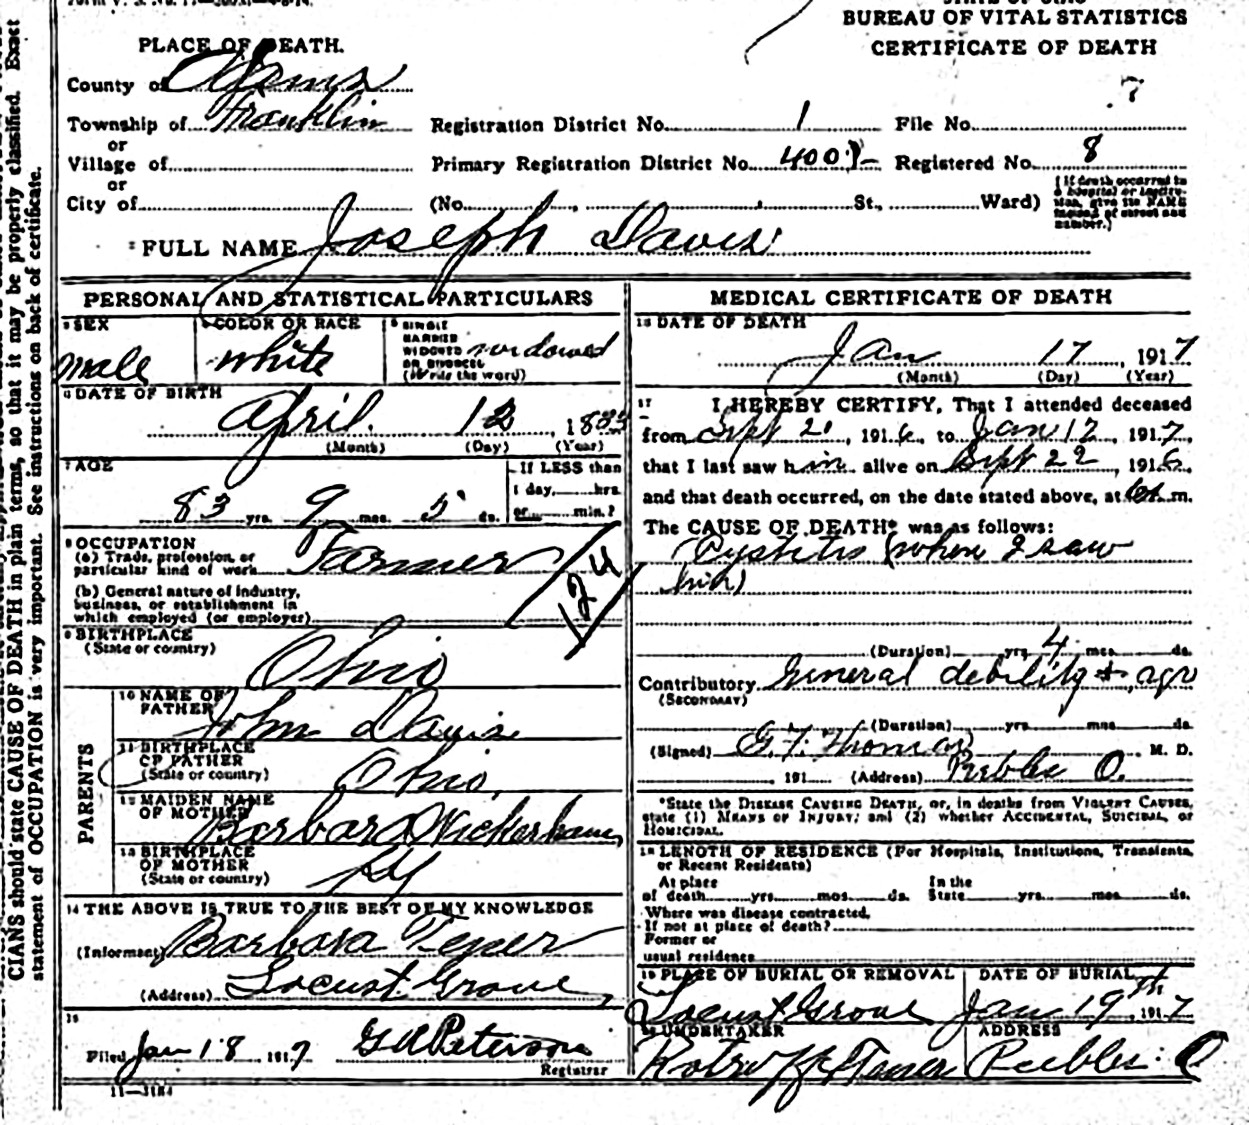 BUREAU OF VITAL STATISTICS
CERTIFICATE OF DEATH
PLACE OF DEATH.
County of Adams
Township of Franklin Registration District No. 1 File No. 7
or
Village of Primary Registration District No. 4001 Registered No. 8
or
City of (No. , St., Ward) (If death occurred in a hospital or institution, give its NAME instead of street and number.)
FULL NAME Joseph Davis
PERSONAL AND STATISTICAL PARTICULARS
SEX male
COLOR OR RACE white
SINGLE MARRIED WIDOWED OR DIVORCED (Write the word) widowed
DATE OF BIRTH
April 12, 1833
(Month) (Day) (Year)
AGE
83 yrs. 9 mos. 5 ds.
If LESS than
1 day, hrs.
or min.?
OCCUPATION
(a) Trade, profession, or
particular kind of work Farmer
(b) General nature of industry,
business, or establishment in
which employed (or employer)
124
BIRTHPLACE
(State or country) Ohio
PARENTS
10 NAME OF
FATHER John Davis
11 BIRTHPLACE
OF FATHER
(State or country) Ohio.
12 MAIDEN NAME
OF MOTHER Barbara Wickerham
13 BIRTHPLACE
OF MOTHER
(State or country) Ky
14 THE ABOVE IS TRUE TO THE BEST OF MY KNOWLEDGE
(Informant) Barbara Tener
(Address) Locust Grove,
15
Filed Jan 18, 1917 G A Peterson
Registrar
11—3184
MEDICAL CERTIFICATE OF DEATH
16 DATE OF DEATH
Jan 17, 1917
(Month) (Day) (Year)
17 I HEREBY CERTIFY, That I attended deceased
from Sept 21, 1916, to Jan 17, 1917,
that I last saw him alive on Sept 22, 1916
and that death occurred, on the date stated above, at m.
The CAUSE OF DEATH* was as follows:
Cystitis (when I saw
him)
(Duration) yrs. 4 mos. ds.
Contributory General debility & age
(SECONDARY)
(Duration) yrs. mos. ds.
(Signed) G. F. Thomas, M. D.
, 191 (Address) Peebles O.
*State the DISEASE CAUSING DEATH, or, in deaths from VIOLENT CAUSES,
state (1) MEANS OF INJURY; and (2) whether ACCIDENTAL, SUICIDAL, or
HOMICIDAL.
18 LENGTH OF RESIDENCE (For Hospitals, Institutions, Transients,
or Recent Residents)
At place
of death yrs. mos. ds. In the
State yrs. mos. ds.
Where was disease contracted,
If not at place of death?
Former or
usual residence
19 PLACE OF BURIAL OR REMOVAL DATE OF BURIAL
Locust Grove Jan 19th, 1917
20 UNDERTAKER ADDRESS
Rotroff & Tener Peebles: O
CIANS should state CAUSE OF DEATH in plain terms, so that it may be properly classified. Exact
statement of OCCUPATION is very important. See instructions on back of certificate.